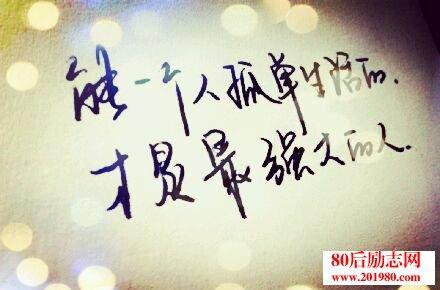 能一个人孤单生活的.
才是最强大的人.
80后励志网
www.201980.com